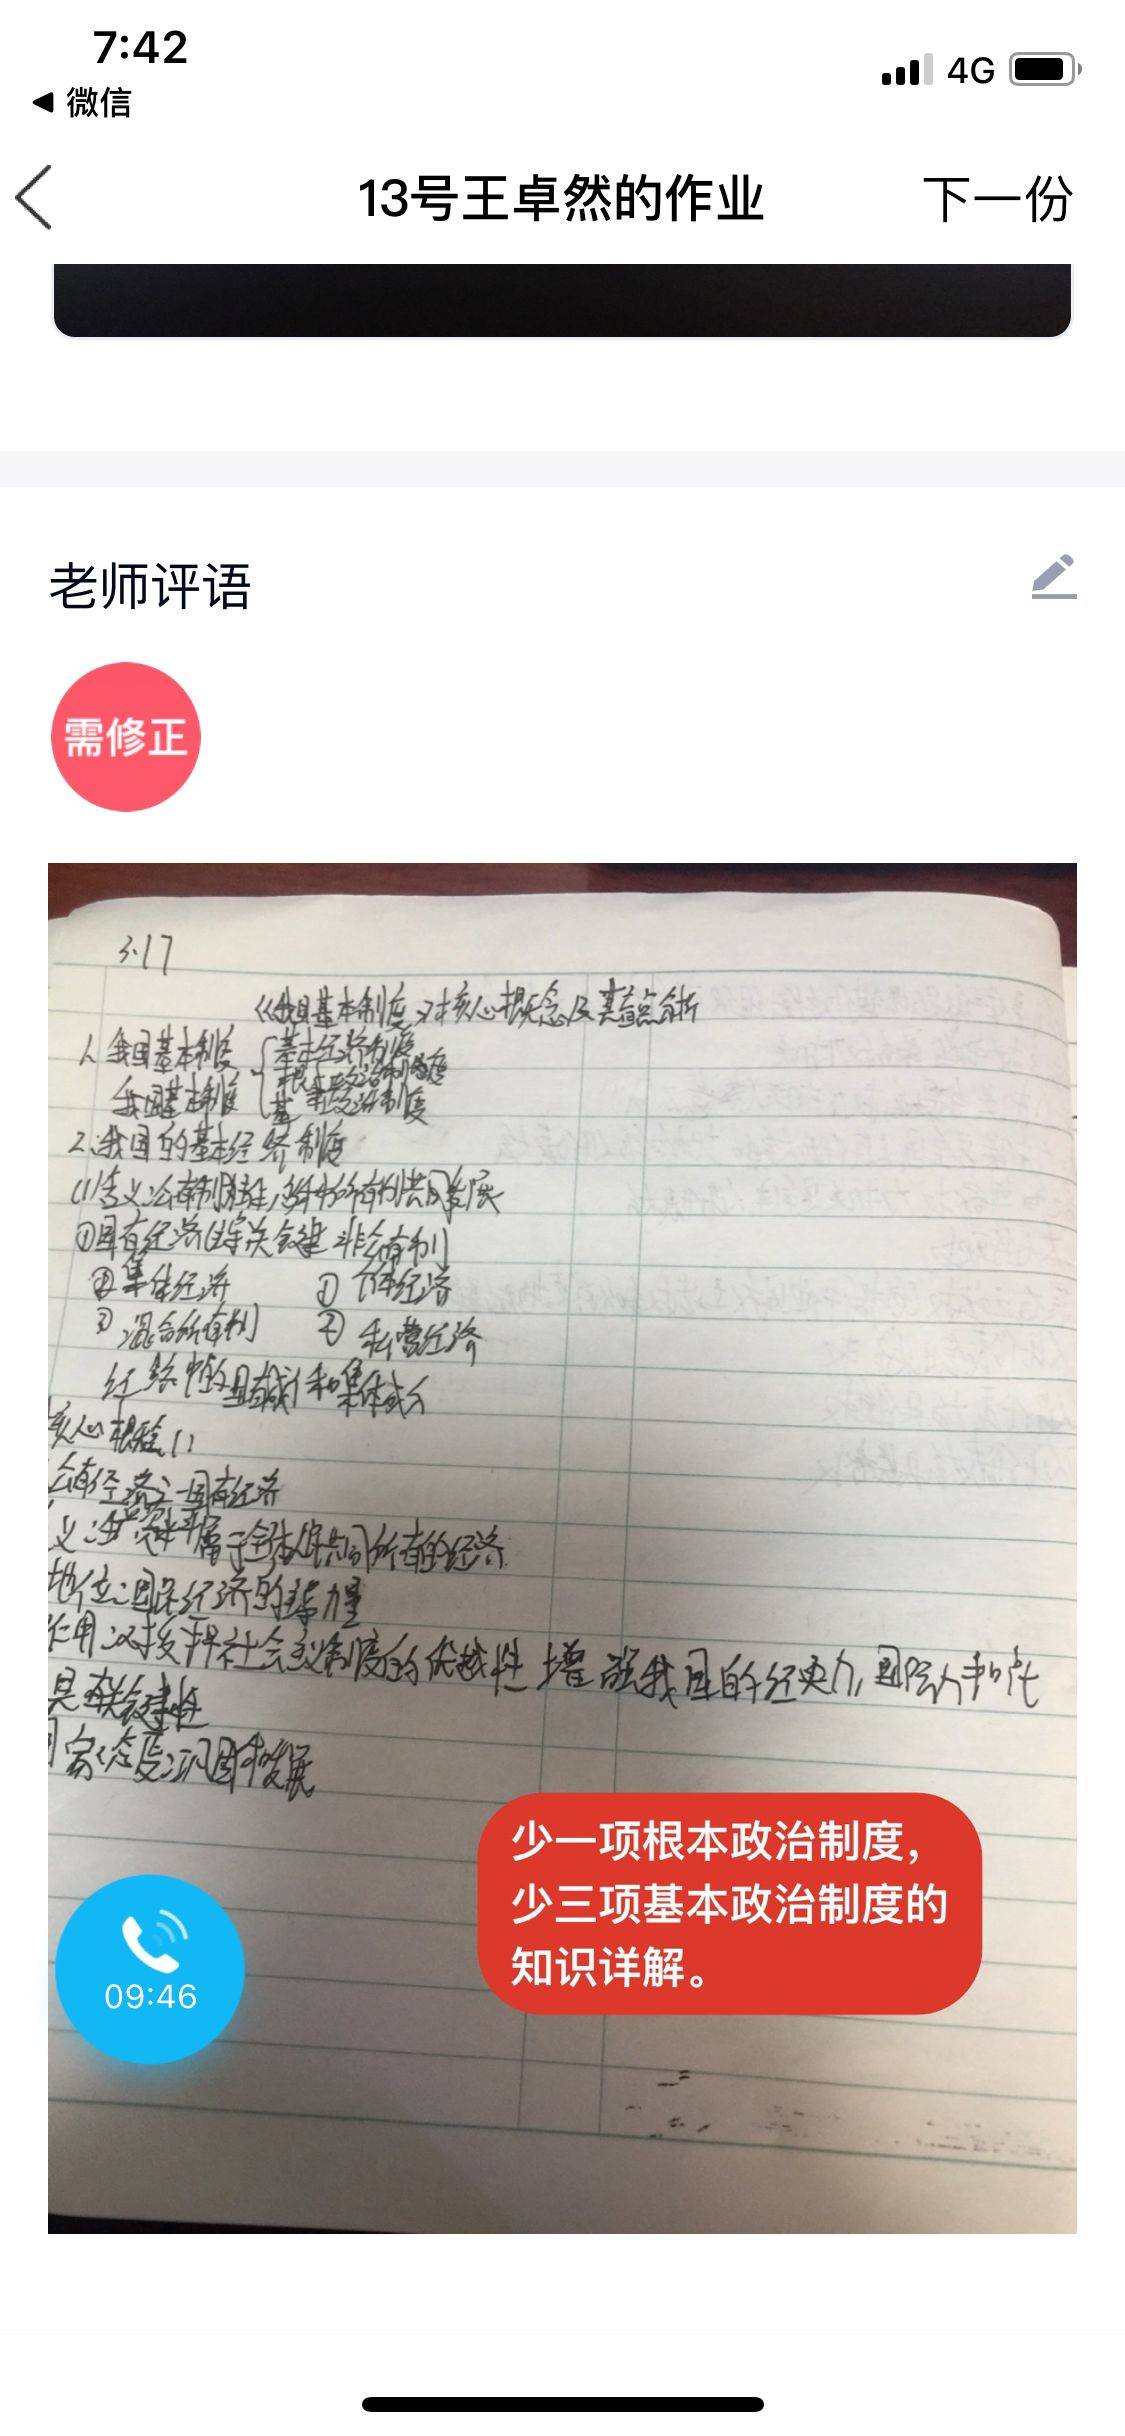 7:42
4G
微信
13号王卓然的作业
下一份
老师评语
需修正
3.17
《我国基本制度》核心概念及其考点分析
1. 我国基本制度 基本经济制度
根本政治制度
我国基本制度 基本政治制度
2.我国的基本经济制度
(1)含义:公有制为主体,多种所有制共同发展
①国有经济 主导 关键 非公有制
②集体经济 ① 个体经济
③混合所有制 ② 私营经济
经济中的国有成分和集体成分
核心概念
公有经济 国有经济
属于全体人民共同所有的经济
地位:国民经济的主导力量
作用:发挥社会主义制度的优越性 增强我国的经济实力,国防力和
国家态度:巩固和发展
少一项根本政治制度,
少三项基本政治制度的
知识详解。
09:46